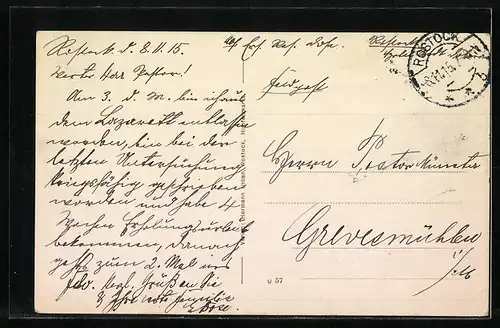 Rostock d. 8.11.15.
Werter Herr Pastor!
Am 3. d. M. bin ich aus
dem Lazarett entlassen
worden, bin bei der
letzten Untersuchung
kriegsfähig geschrieben
worden und habe 4
Wochen Erholungsurlaub
bekommen, danach
geht's zum 2. Mal ins
Feld. Herzl. Grüßen Sie
Familie
Rostock
Feldpost
ROSTOCK
8.11.15
Herrn Pastor Münster
Grevesmühlen
i/M
u 57